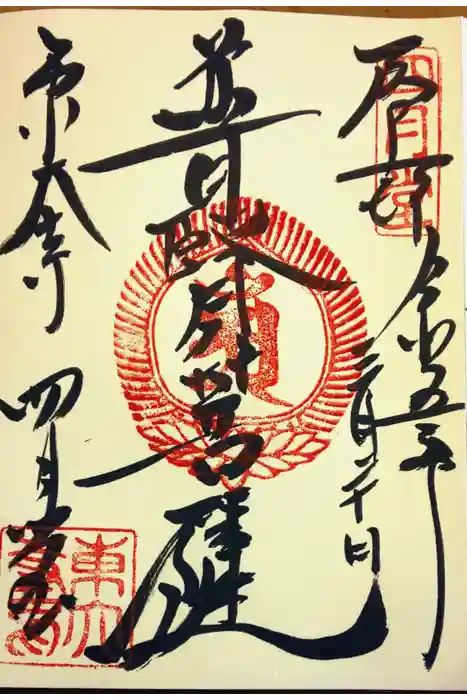 四月堂
令和五年
二月二十日
普賢菩薩
東大寺 四月堂
東大